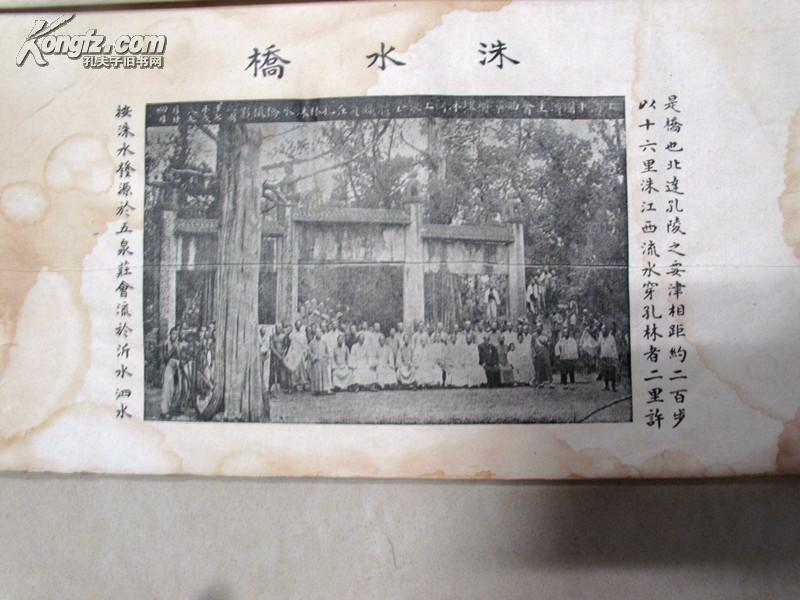 Kongfz.com
孔夫子旧书网
洙水橋
是橋也北達孔陵之要津相距約二百步
以十六里洙江西流水穿孔林者二里許
按洙水發源於五泉莊會流於沂水泗水